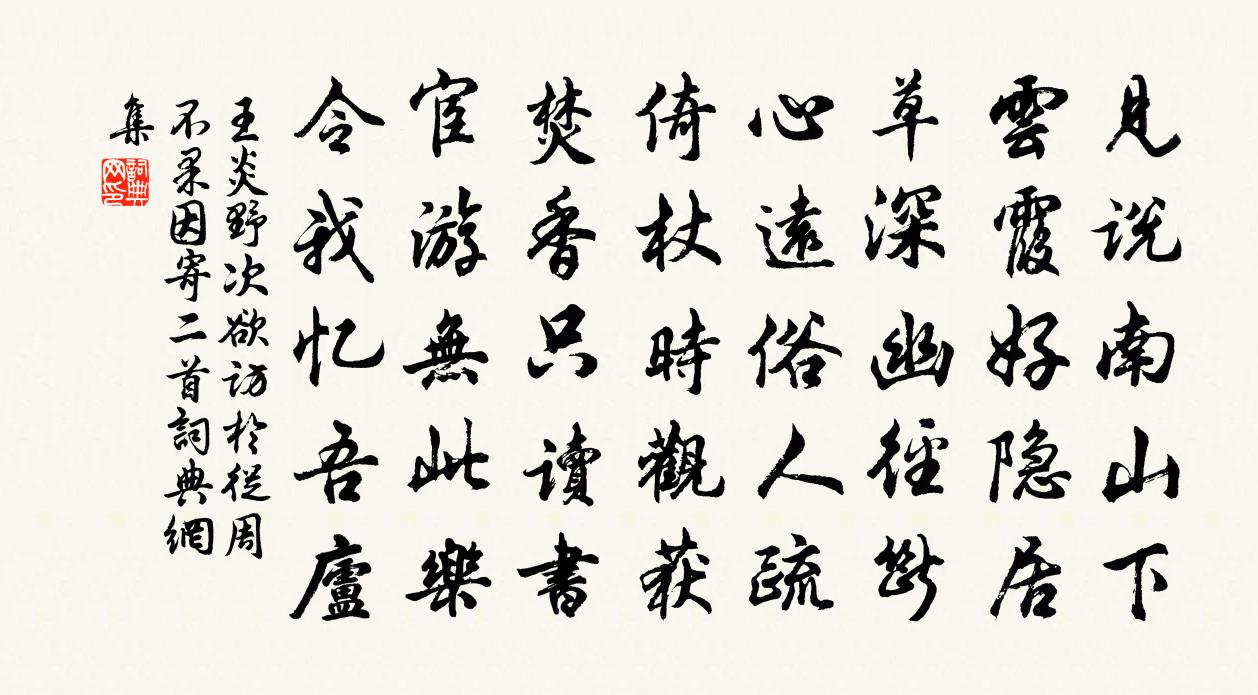 見说南山下
雲霞好隐居
草深幽徑斷
心遠俗人疏
倚杖時觀获
焚香只讀書
宦游無此樂
令我忆吾廬
王炎野次欲访於從周
不果因寄二首詞典網
集
詞典
网印